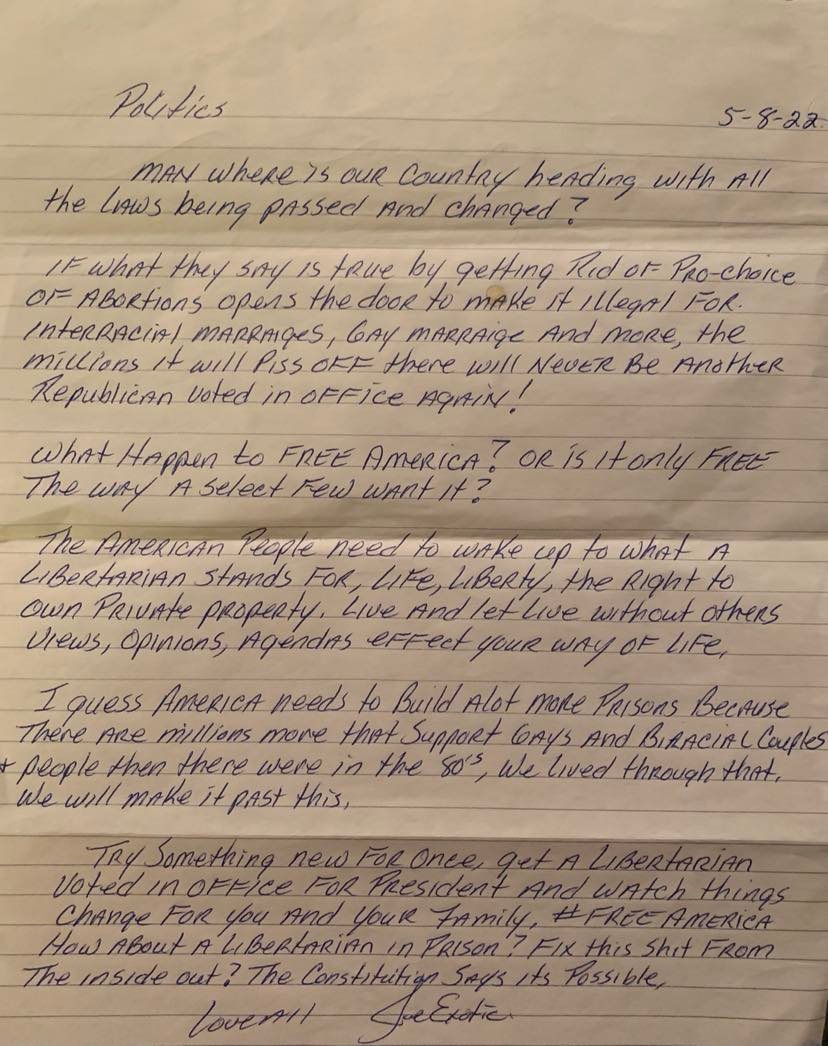 Politics
5-8-22
MAN where is our Country heading with All
the LAWs being passed And changed?
IF what they say is true by getting Rid of Pro-choice
OF Abortions opens the door to make it illegal For.
Interracial marraiges, Gay marraige And more, the
millions it will Piss OFF there will Never Be Another
Republican voted in office Again!
What Happen to FREE America? OR is it only FREE
The way A select Few want it?
The American People need to wake up to what A
Libertarian stands For, Life, Liberty, the Right to
own Private property. Live And let Live without others
views, opinions, Agendas effect your way of Life,
I guess America needs to Build Alot more Prisons Because
There Are millions more that Support Gays And Biracial Couples
+ people then there were in the 80's, We lived through that.
We will make it past this,
Try Something new For Once, get A Libertarian
voted in office For President And watch things
Change For you And your Family, #FREE AMERICA
How About A Libertarian in Prison? Fix this shit From
The inside out? The Constitution Says its Possible,
Love All Joe Exotic